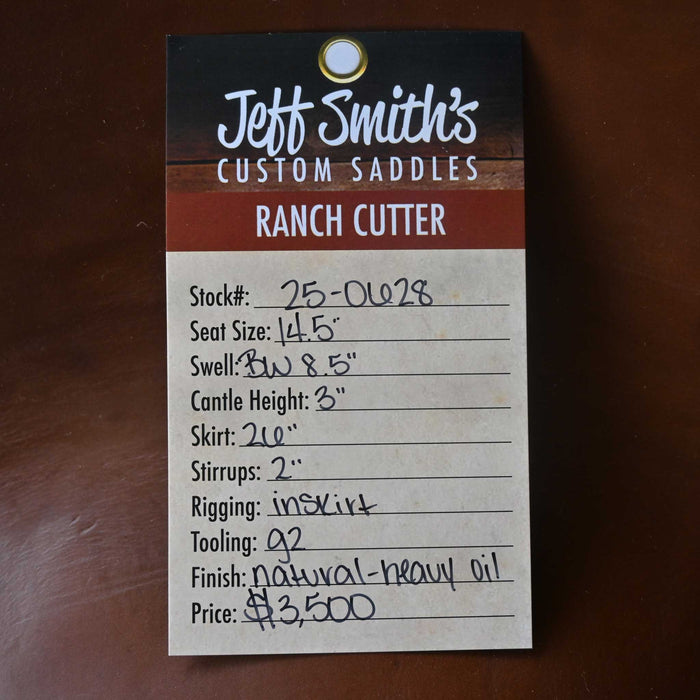 Jeff Smith's
CUSTOM SADDLES
RANCH CUTTER
Stock#: 25-0628
Seat Size: 14.5"
Swell: BW 8.5"
Cantle Height: 3"
Skirt: 26"
Stirrups: 2"
Rigging: inskirt
Tooling: g2
Finish: natural-heavy oil
Price: $3,500